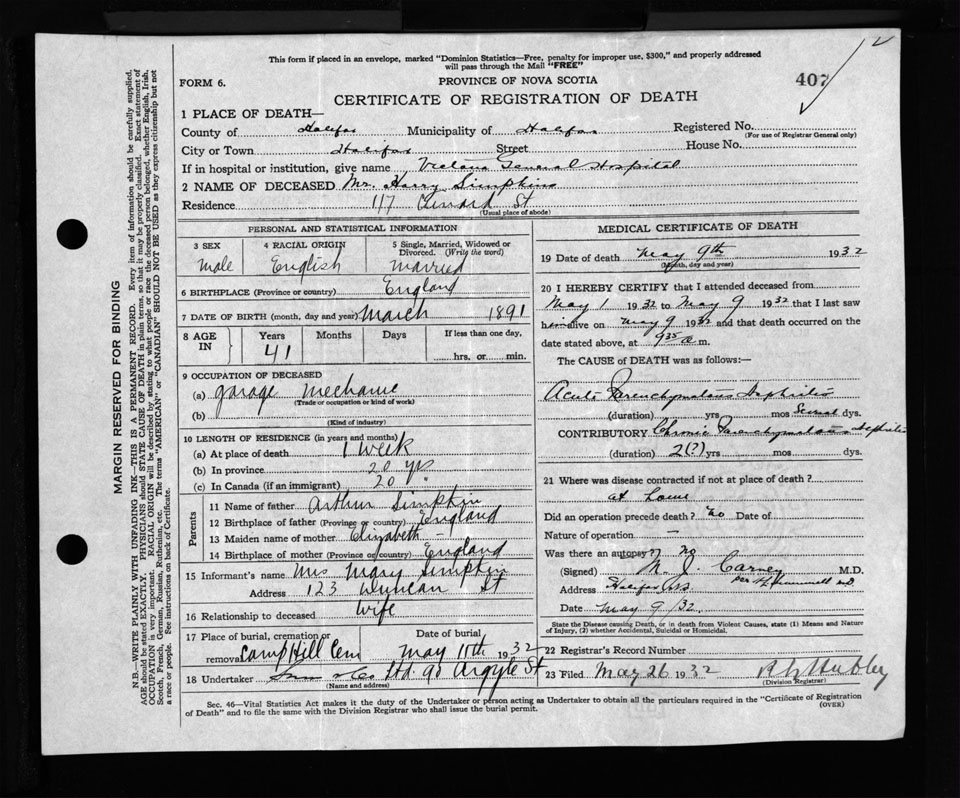 This form if placed in an envelope, marked "Dominion Statistics—Free, penalty for improper use, $300," and properly addressed
will pass through the Mail "FREE"
FORM 6.
PROVINCE OF NOVA SCOTIA
407
CERTIFICATE OF REGISTRATION OF DEATH
1 PLACE OF DEATH—
County of Halifax Municipality of Halifax Registered No.
(For use of Registrar General only)
City or Town Halifax Street House No.
If in hospital or institution, give name Victoria General Hospital
2 NAME OF DECEASED Mr. Harry Simpkins
Residence 117 St
(Usual place of abode)
PERSONAL AND STATISTICAL INFORMATION
3 SEX 4 RACIAL ORIGIN 5 Single, Married, Widowed or Divorced. (Write the word)
Male English Married
6 BIRTHPLACE (Province or country) England
7 DATE OF BIRTH (month, day and year) March 1891
8 AGE IN Years Months Days If less than one day,
41 hrs. or min.
9 OCCUPATION OF DECEASED
(a) garage mechanic
(Trade or occupation or kind of work)
(b)
(Kind of industry)
10 LENGTH OF RESIDENCE (in years and months)
(a) At place of death 1 week
(b) In province 20 yrs
(c) In Canada (if an immigrant) 20 "
Parents
11 Name of father Arthur Simpkin
12 Birthplace of father (Province or country) England
13 Maiden name of mother Elizabeth -
14 Birthplace of mother (Province or country) England
15 Informant's name Mrs Mary Simpkin
Address 123 Duncan St
16 Relationship to deceased Wife
17 Place of burial, cremation or removal Camp Hill Cem Date of burial May 11th 1932
18 Undertaker Snow & Co Ltd. 90 Argyle St
(Name and address)
MEDICAL CERTIFICATE OF DEATH
19 Date of death May 9th 1932
(Month, day and year)
20 I HEREBY CERTIFY that I attended deceased from
May 1 1932 to May 9 1932 that I last saw
him alive on May 9 1932 and that death occurred on the
date stated above, at 9 35 a m.
The CAUSE of DEATH was as follows:—
Acute Parenchymatous Nephritis
(duration) yrs mos Several dys.
CONTRIBUTORY Chronic Parenchymatous Nephritis
(duration) 2(?) yrs mos dys.
21 Where was disease contracted if not at place of death?
at home
Did an operation precede death? no Date of
Nature of operation —
Was there an autopsy? No
(Signed) Carney M.D.
Address Halifax NS
Date May 9/32.
State the Disease causing Death, or in death from Violent Causes, state (1) Means and Nature
of Injury, (2) whether Accidental, Suicidal or Homicidal.
22 Registrar's Record Number
23 Filed May 26 1932
(Division Registrar)
Sec. 46—Vital Statistics Act makes it the duty of the Undertaker or person acting as Undertaker to obtain all the particulars required in the "Certificate of Registration
of Death" and to file the same with the Division Registrar who shall issue the burial permit.
(OVER)
MARGIN RESERVED FOR BINDING
N.B.—WRITE PLAINLY WITH UNFADING INK—THIS IS A PERMANENT RECORD. Every item of information should be carefully supplied.
AGE should be stated EXACTLY. PHYSICIANS should STATE CAUSE OF DEATH in plain terms so that it may be properly classified. Exact statement of
OCCUPATION is very important. RACIAL ORIGIN will be described by stating to what people or race the deceased person belonged, whether English, Irish,
Scotch, French, German, Russian, Ruthenian, etc. The terms "AMERICAN" or "CANADIAN" SHOULD NOT BE USED as they express citizenship but not
a race or people. See instructions on back of Certificate.